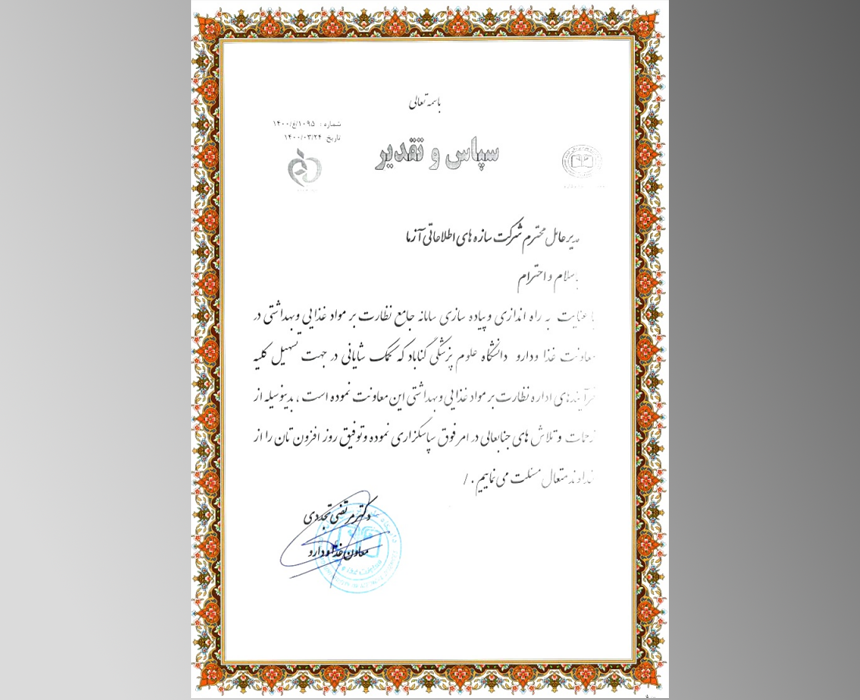 باسمه تعالی
شماره : ۱۰۹۵/غ/۱۴۰۰
تاریخ ۱۴۰۰/۰۳/۲۴
سپاس و تقدیر
مدیرعامل محترم شرکت سازه های اطلاعاتی آزما
باسلام و احترام
با عنایت به راه اندازی و پیاده سازی سامانه جامع نظارت بر مواد غذایی وبهداشتی در
معاونت غذا ودارو دانشگاه علوم پزشکی گناباد که کمک شایانی در جهت تسهیل کلیه
فرآیندهای اداره نظارت بر مواد غذایی وبهداشتی این معاونت نموده است ، بدینوسیله از
زحمات و تلاش های جنابعالی در امر فوق سپاسگزاری نموده وتوفیق روز افزون تان را از
خداوند متعال مسئلت می نماییم . /
دکتر مرتضی تجددی
معاون غذا و دارو